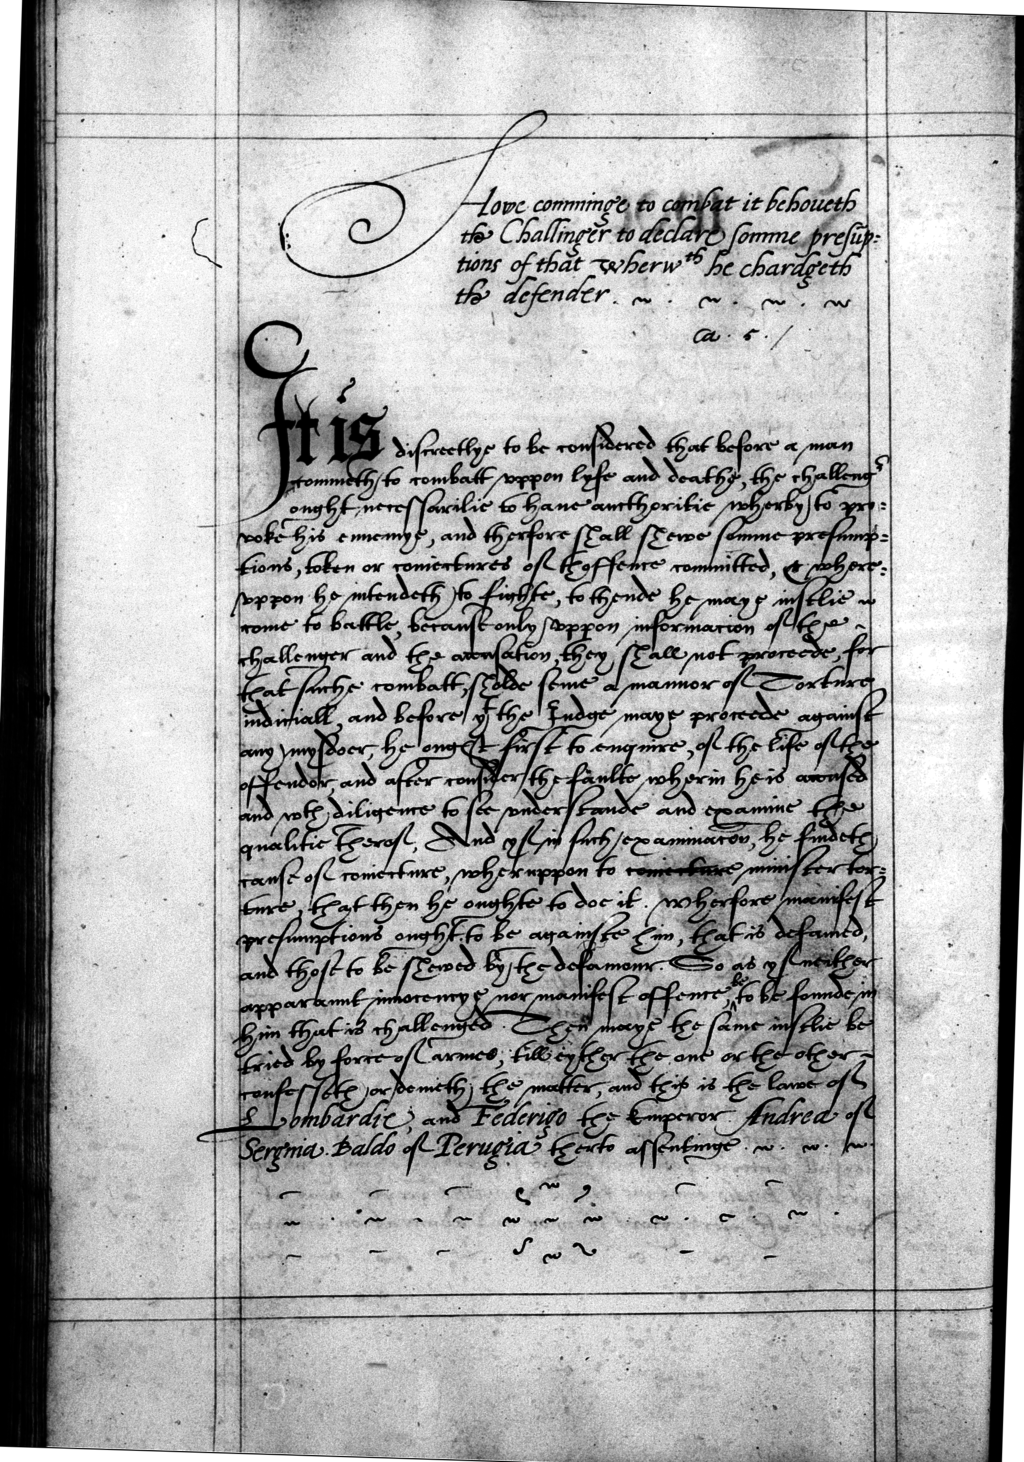 Howe comminge to combat it behoueth
the Challinger to declare somme presup=
tions of that wherwth he chardgeth
the defender.
Ca. 5. /
It is discreetlye to be considered that before a man
commeth to combatt vppon lyfe and deathe, the challenger
ought necessarilie to haue aucthoritie wherby to pro=
voke his ennemye, and therfore shall shewe somme presump=
tions, token or coniectures of thoffence committed, & where=
vppon he intendeth to fighte, to thende he maye iustlie
come to battle, because only vppon informacion of the
challenger and the accusation, they shall not proceede, for
that suche combatt, sholde seme a mannor of Torture
iudiciall, and before yt the Judge maye proceede against
any mysdoer, he ought first to enquire, of the life of the
offendor, and after consider the faulte wherin he is accused
and wth diligence to see vnderstande and examine the
qualitie therof, And yf in such examinacon, he findeth
cause of coniecture, wheruppon to coniecture minister tor=
ture, that then he oughte to doe it. wherfore manifest
presumptions ought to be againste him, that is defamed,
and those to be shewed by the defamour. So as yf neither
apparaunt innocencye nor manifest offence be to be founde in
him that is challenged. Then maye the same iustlie be
tried by force of armes, till eyther the one or the other
confesseth or denieth the matter, and this is the lawe of
Lombardie, and Federigo the Emperor Andrea of
Sergnia. Baldo of Perugia therto assentinge.